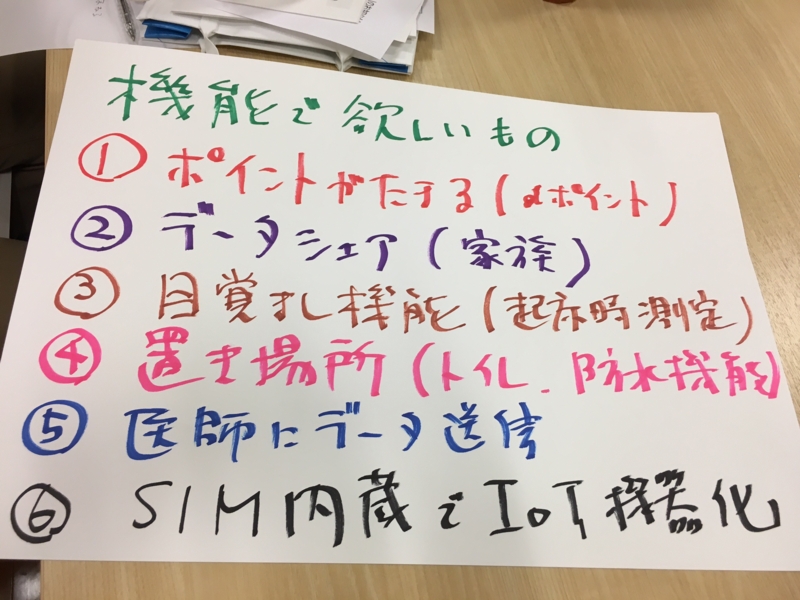 機能で欲しいもの
① ポイントがたまる(dポイント)
② データシェア(家族)
③ 目覚まし機能(起床時測定)
④ 置き場所(トイレ、防水機能)
⑤ 医師にデータ送信
⑥ SIM内蔵でIoT機器化